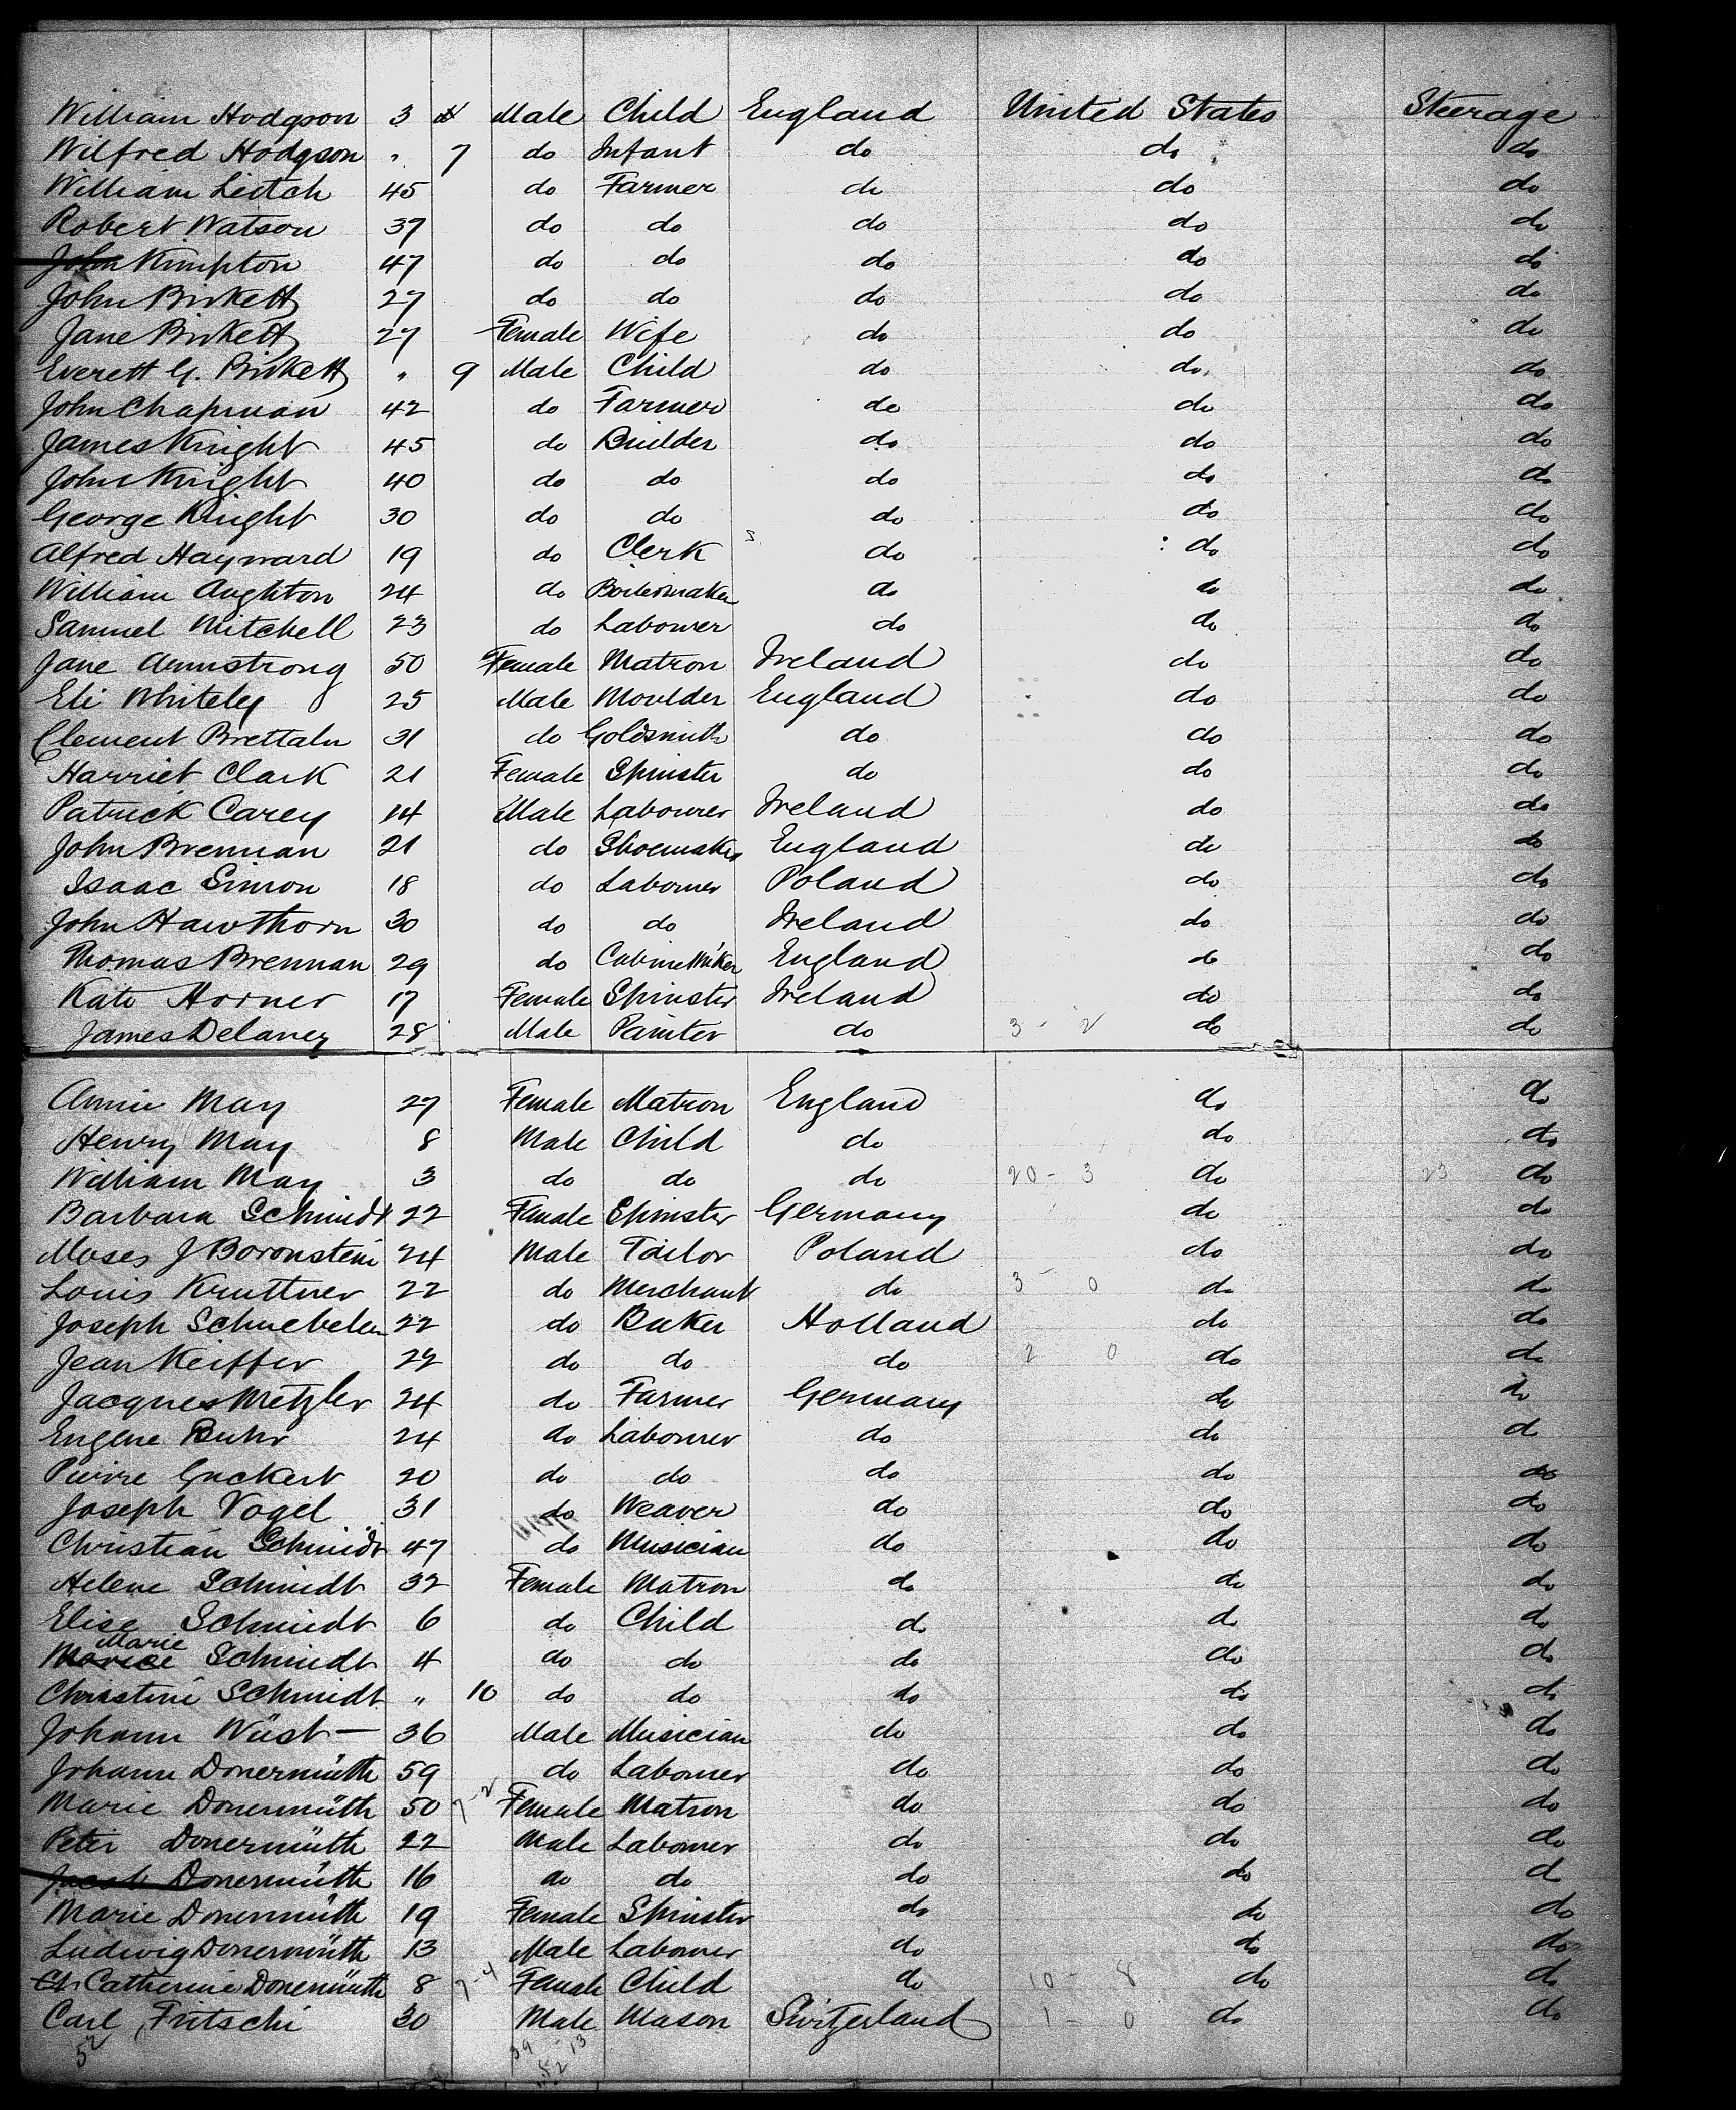 William Hodgson 3 Male Child England United States Steerage
Wilfred Hodgson " 7 do Infant do do do
William Leitch 45 do Farmer do do do
Robert Watson 37 do do do do do
John Kimpton 47 do do do do do
John Birkett 27 do do do do do
Jane Birkett 27 Female Wife do do do
Everett G. Birkett " 9 Male Child do do do
John Chapman 42 do Farmer do do do
James Knight 45 do Builder do do do
John Knight 40 do do do do do
George Knight 30 do do do do do
Alfred Hayward 19 do Clerk do do do
William Aughton 24 do Boilermaker do do do
Samuel Mitchell 23 do Labourer do do do
Jane Armstrong 50 Female Matron Ireland do do
Eli Whiteley 25 Male Moulder England do do
Clement Brettaln 31 do Goldsmith do do do
Harriet Clark 21 Female Spinster do do do
Patrick Carey 14 Male Labourer Ireland do do
John Brennan 21 do Shoemaker England do do
Isaac Simon 18 do Labourer Poland do do
John Hawthorn 30 do do Ireland do do
Thomas Brennan 29 do CabineMker England do do
Kate Horner 17 Female Spinster Ireland do do
James Delaney 28 Male Painter do 3 - 2 do do
Annie May 27 Female Matron England do do
Henry May 8 Male Child do do do
William May 3 do do do 20 - 3 do 23 do
Barbara Schmidt 22 Female Spinster Germany do do
Moses J Boronstein 24 Male Tailor Poland do do
Louis Kruttner 22 do Merchant do 3 - 0 do do
Joseph Schuebelen 22 do Baker Holland do do
Jean Keiffer 22 do do do 2 0 do do
Jacques Metzler 24 do Farmer Germany do do
Eugene Buhr 24 do Labourer do do do
Pierre Guckert 20 do do do do do
Joseph Vogel 31 do Weaver do do do
Christian Schmidt 47 do Musician do do do
Helene Schmidt 32 Female Matron do do do
Elise Schmidt 6 do Child do do do
Marie Schmidt 4 do do do do do
Christine Schmidt " 10 do do do do do
Johann Wüst — 36 Male Musician do do do
Johann Donermüth 59 do Labourer do do do
Marie Donermüth 50 7-2 Female Matron do do do
Peter Donermüth 22 Male Labourer do do do
Jacob Donermüth 16 do do do do do
Marie Donermüth 19 Female Spinster do do do
Ludwig Donermüth 13 Male Labourer do do do
Catherine Donermüth 8 7-4 Female Child do 10 - 8 do do
Carl Fritschi 30 Male Mason Switzerland 1 - 0 do do
52 39 - 13
52